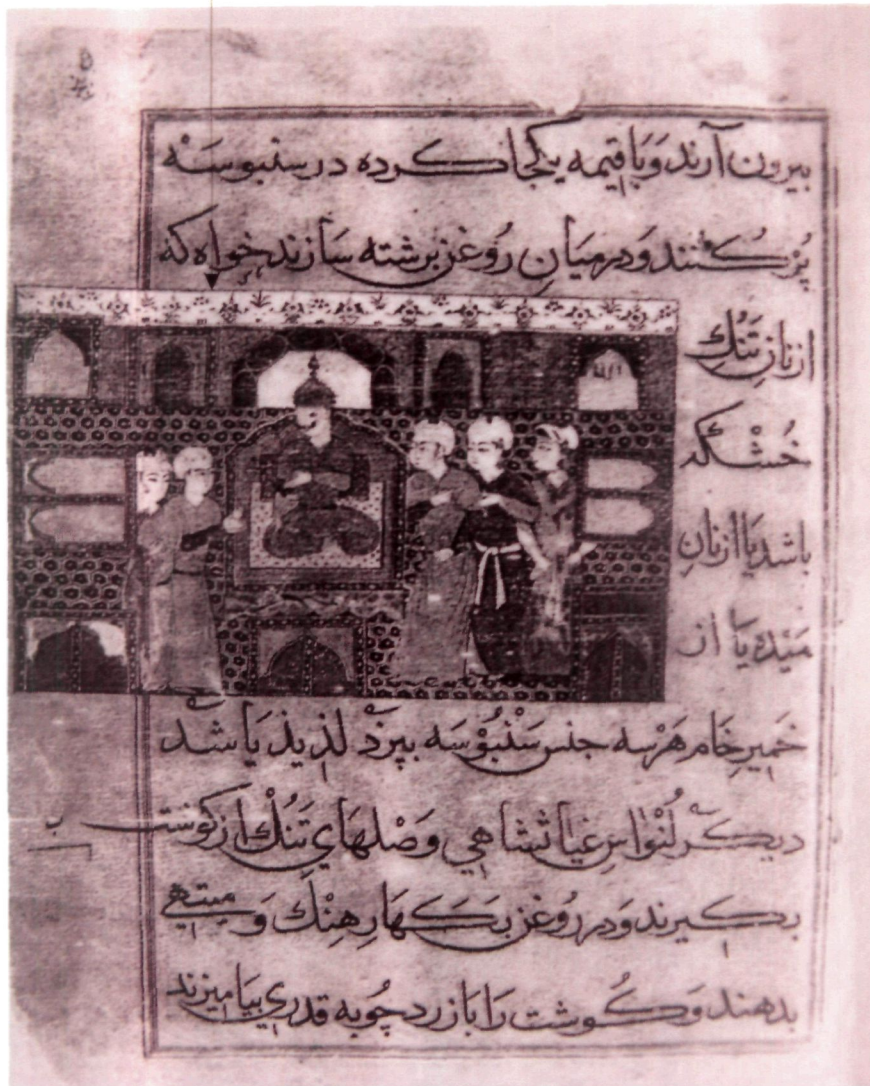 بیرون آرند وَبَا قیمه یکجا کرده در سنبوسَه
پُر کُنند وَدرمیَانِ رُوغن برشته سَازند خواه که
از نانِ تَنُك
خُشکه
باشد یَا از نانِ
مَیده یَا از
خَمیرِ خَام هَر سه جنس سَنْبُوْسَه بپزَد لذیذ بَاشد
دیکَر لُنْوَاسِ غیاثشاهي وَصْلهَايِ تَنُك از کوشت
بکیرند وَدر روُغن بَکَهارِ هِنْك وَ میتهي
بدهند وَکُوشت رَا بَا زردچُوبه قدري بیَامیزند